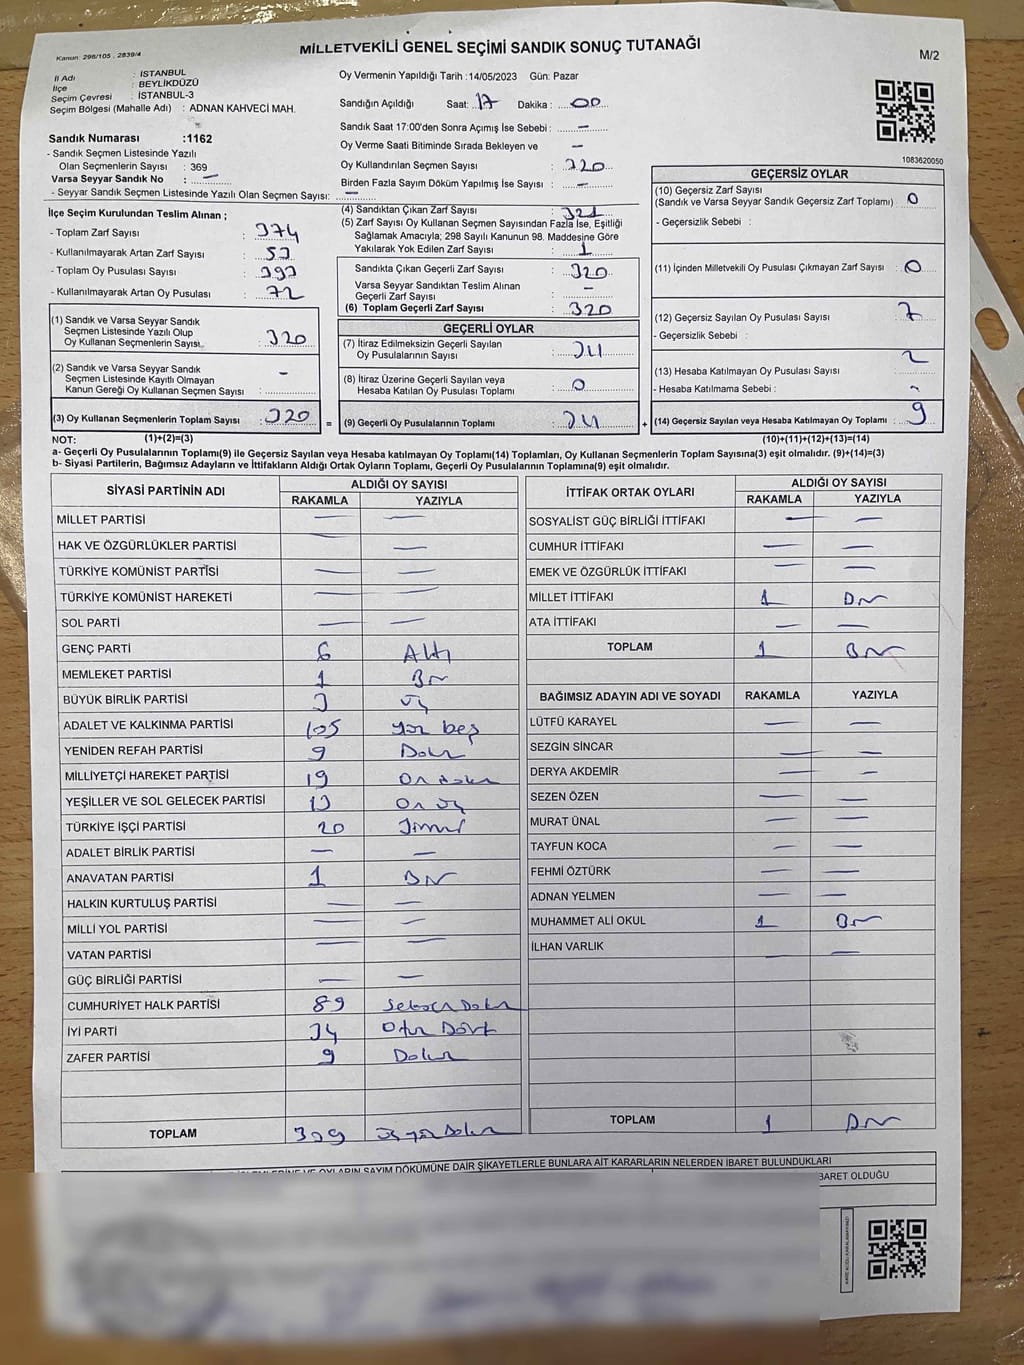 MİLLETVEKİLİ GENEL SEÇİMİ SANDIK SONUÇ TUTANAĞI
M/2
Kanun: 298/105 , 2839/4
İl Adı : İSTANBUL
İlçe : BEYLİKDÜZÜ
Seçim Çevresi : İSTANBUL-3
Seçim Bölgesi (Mahalle Adı) : ADNAN KAHVECİ MAH.
Sandık Numarası :1162
- Sandık Seçmen Listesinde Yazılı
Olan Seçmenlerin Sayısı : 369
Varsa Seyyar Sandık No : —
- Seyyar Sandık Seçmen Listesinde Yazılı Olan Seçmen Sayısı: —
Oy Vermenin Yapıldığı Tarih :14/05/2023 Gün: Pazar
Sandığın Açıldığı Saat: 17 Dakika : 00
Sandık Saat 17:00'den Sonra Açımış İse Sebebi : —
Oy Verme Saati Bitiminde Sırada Bekleyen ve —
Oy Kullandırılan Seçmen Sayısı : 320
Birden Fazla Sayım Döküm Yapılmış İse Sayısı : —
1083620050
İlçe Seçim Kurulundan Teslim Alınan ;
- Toplam Zarf Sayısı : 374
- Kullanılmayarak Artan Zarf Sayısı : 53
- Toplam Oy Pusulası Sayısı : 393
- Kullanılmayarak Artan Oy Pusulası : 72
(1) Sandık ve Varsa Seyyar Sandık
Seçmen Listesinde Yazılı Olup
Oy Kullanan Seçmenlerin Sayısı : 320
(2) Sandık ve Varsa Seyyar Sandık
Seçmen Listesinde Kayıtlı Olmayan —
Kanun Gereği Oy Kullanan Seçmen Sayısı :
(3) Oy Kullanan Seçmenlerin Toplam Sayısı : 320 =
(4) Sandıktan Çıkan Zarf Sayısı : 321
(5) Zarf Sayısı Oy Kullanan Seçmen Sayısından Fazla İse, Eşitliği
Sağlamak Amacıyla; 298 Sayılı Kanunun 98. Maddesine Göre
Yakılarak Yok Edilen Zarf Sayısı : 1
Sandıkta Çıkan Geçerli Zarf Sayısı : 320
Varsa Seyyar Sandıktan Teslim Alınan —
Geçerli Zarf Sayısı :
(6) Toplam Geçerli Zarf Sayısı : 320
GEÇERLİ OYLAR
(7) İtiraz Edilmeksizin Geçerli Sayılan
Oy Pusulalarının Sayısı : 311
(8) İtiraz Üzerine Geçerli Sayılan veya
Hesaba Katılan Oy Pusulası Toplamı : 0
(9) Geçerli Oy Pusulalarının Toplamı : 311 +
GEÇERSİZ OYLAR
(10) Geçersiz Zarf Sayısı
(Sandık ve Varsa Seyyar Sandık Geçersiz Zarf Toplamı) : 0
- Geçersizlik Sebebi :
(11) İçinden Milletvekili Oy Pusulası Çıkmayan Zarf Sayısı : 0
(12) Geçersiz Sayılan Oy Pusulası Sayısı : 7
- Geçersizlik Sebebi :
2
(13) Hesaba Katılmayan Oy Pusulası Sayısı :
- Hesaba Katılmama Sebebi :
(14) Geçersiz Sayılan veya Hesaba Katılmayan Oy Toplamı : 9
NOT: (1)+(2)=(3) (10)+(11)+(12)+(13)=(14)
a- Geçerli Oy Pusulalarının Toplamı(9) ile Geçersiz Sayılan veya Hesaba katılmayan Oy Toplamı(14) Toplamları, Oy Kullanan Seçmenlerin Toplam Sayısına(3) eşit olmalıdır. (9)+(14)=(3)
b- Siyasi Partilerin, Bağımsız Adayların ve İttifakların Aldığı Ortak Oyların Toplamı, Geçerli Oy Pusulalarının Toplamına(9) eşit olmalıdır.
SİYASİ PARTİNİN ADI ALDIĞI OY SAYISI
RAKAMLA YAZIYLA
MİLLET PARTİSİ — —
HAK VE ÖZGÜRLÜKLER PARTİSİ — —
TÜRKİYE KOMÜNİST PARTİSİ — —
TÜRKİYE KOMÜNİST HAREKETİ — —
SOL PARTİ — —
GENÇ PARTİ 6 Altı
MEMLEKET PARTİSİ 1 Bir
BÜYÜK BİRLİK PARTİSİ 3 üç
ADALET VE KALKINMA PARTİSİ 105 yüz beş
YENİDEN REFAH PARTİSİ 9 Dokuz
MİLLİYETÇİ HAREKET PARTİSİ 19 On dokuz
YEŞİLLER VE SOL GELECEK PARTİSİ 13 On üç
TÜRKİYE İŞÇİ PARTİSİ 20 Yirmi
ADALET BİRLİK PARTİSİ — —
ANAVATAN PARTİSİ 1 Bir
HALKIN KURTULUŞ PARTİSİ — —
MİLLİ YOL PARTİSİ — —
VATAN PARTİSİ — —
GÜÇ BİRLİĞİ PARTİSİ — —
CUMHURİYET HALK PARTİSİ 89 Seksen Dokuz
İYİ PARTİ 34 Otuz Dört
ZAFER PARTİSİ 9 Dokuz
TOPLAM 309 üçyüz Dokuz
İTTİFAK ORTAK OYLARI ALDIĞI OY SAYISI
RAKAMLA YAZIYLA
SOSYALİST GÜÇ BİRLİĞİ İTTİFAKI — —
CUMHUR İTTİFAKI — —
EMEK VE ÖZGÜRLÜK İTTİFAKI — —
MİLLET İTTİFAKI 1 Bir
ATA İTTİFAKI — —
TOPLAM 1 Bir
BAĞIMSIZ ADAYIN ADI VE SOYADI RAKAMLA YAZIYLA
LÜTFÜ KARAYEL — —
SEZGİN SİNCAR — —
DERYA AKDEMİR — —
SEZEN ÖZEN — —
MURAT ÜNAL — —
TAYFUN KOCA — —
FEHMİ ÖZTÜRK — —
ADNAN YELMEN — —
MUHAMMET ALİ OKUL 1 Bir
İLHAN VARLIK — —
TOPLAM 1 Bir
OYLARIN SAYIM DÖKÜMÜNE DAİR ŞİKAYETLERLE BUNLARA AİT KARARLARIN NELERDEN İBARET BULUNDUKLARI
BARET OLDUĞU